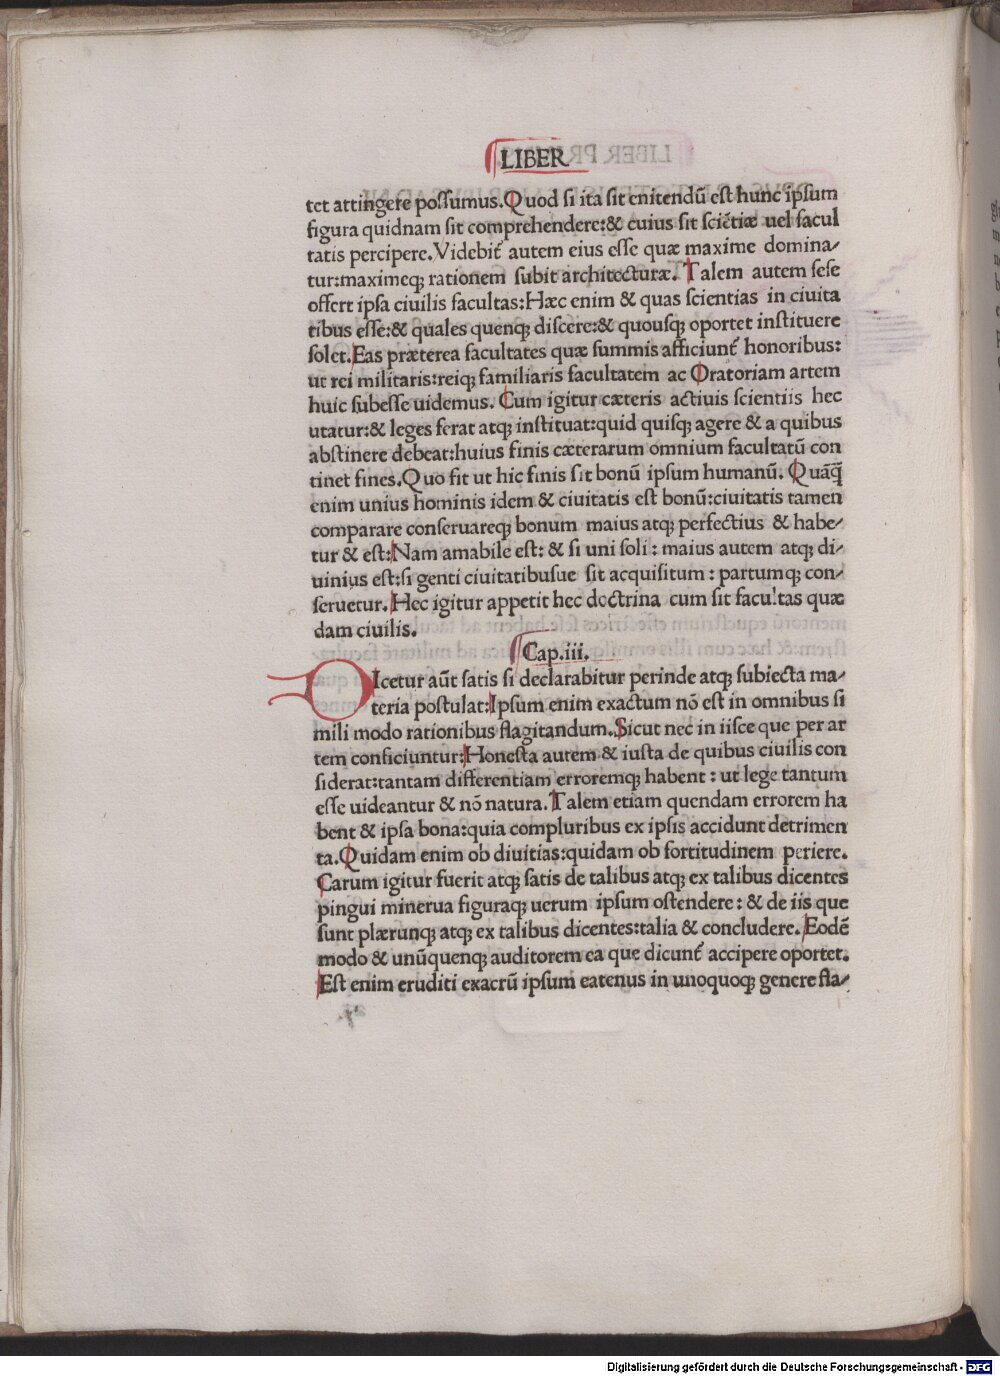 LIBER
tet attingere possumus. Quod si ita sit enitendū est hunc ipsum
figura quidnam sit comprehendere: & cuius sit sciētiæ uel facul
tatis percipere. Videbit᷑ autem eius esse quæ maxime domina-
tur: maximeqꝫ rationem subit architecturæ. Talem autem sese
offert ipsa ciuilis facultas: Hæc enim & quas scientias in ciuita
tibus esse: & quales quenqꝫ discere: & quousqꝫ oportet instituere
solet. Eas præterea facultates quæ summis afficiunt᷑ honoribus:
ut rei militaris: reiqꝫ familiaris facultatem ac Oratoriam artem
huic subesse uidemus. Cum igitur cæteris actiuis scientiis hec
utatur: & leges ferat atqꝫ instituat: quid quisqꝫ agere & a quibus
abstinere debeat: huius finis cæterarum omnium facultatū con
tinet fines. Quo fit ut hic finis sit bonū ipsum humanū. Quāq̄ꝫ
enim unius hominis idem & ciuitatis est bonū: ciuitatis tamen
comparare conseruareqꝫ bonum maius atqꝫ perfectius & habe-
tur & est: Nam amabile est: & si uni soli: maius autem atqꝫ di-
uinius est: si genti ciuitatibusue sit acquisitum: partumqꝫ con-
seruetur. Hec igitur appetit hec doctrina cum sit facultas quæ
dam ciuilis.
Cap. iii.
DIcetur aūt satis si declarabitur perinde atqꝫ subiecta ma-
teria postulat: Ipsum enim exactum nō est in omnibus si
mili modo rationibus flagitandum. Sicut nec in iisce que per ar
tem conficiuntur: Honesta autem & iusta de quibus ciuilis con
siderat: tantam differentiam erroremqꝫ habent: ut lege tantum
esse uideantur & nō natura. Talem etiam quendam errorem ha
bent & ipsa bona: quia compluribus ex ipsis accidunt detrimen
ta. Quidam enim ob diuitias: quidam ob fortitudinem periere.
Carum igitur fuerit atqꝫ satis de talibus atqꝫ ex talibus dicentes
pingui minerua figuraqꝫ uerum ipsum ostendere: & de iis que
sunt plærunqꝫ atqꝫ ex talibus dicentes: talia & concludere. Eodē
modo & unūquenqꝫ auditorem ea que dicunt᷑ accipere oportet.
Est enim eruditi exacrū ipsum eatenus in unoquoqꝫ genere fla-
Digitalisierung gefördert durch die Deutsche Forschungsgemeinschaft - DFG